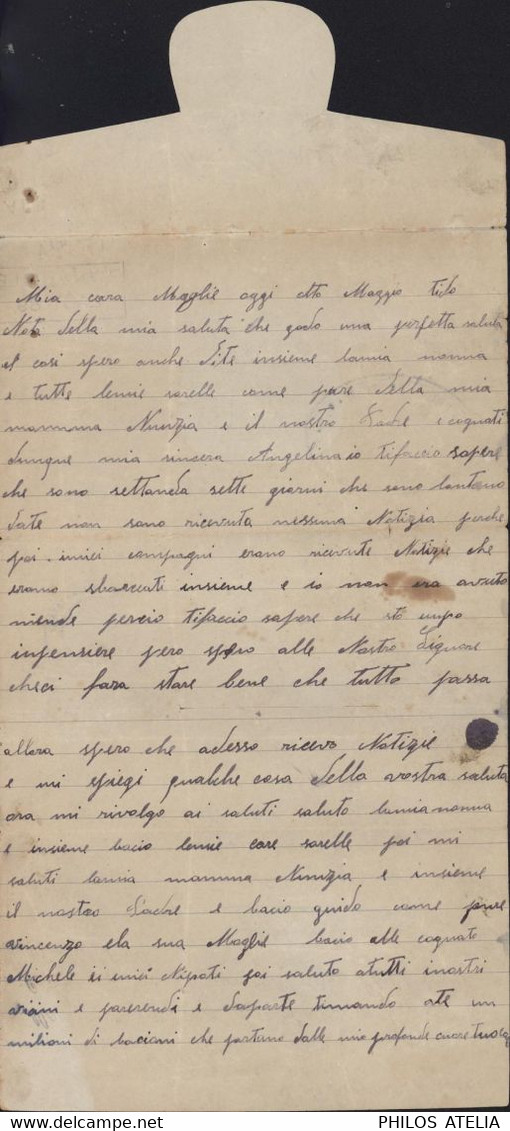 Mia cara Moglie oggi otto Maggio tido
Noti della mia saluta che godo una perfetta saluta
e cosi spero anche dite insieme lamia nonna
e tutte lemie sorelle come pure della mia
mamma Nunzia e il nostro Padre e cognati
dunque mia sincera Angelina io tifaccio sapere
che sono settanda sette giorni che sono lontano
date non sono ricevuta nessuna Notizia perche
poi imiei compagni erano ricevute Notizie che
erano sbarcati insieme e io non era avuto
niende percio tifaccio sapere che sto unpo
inpensiere pero spero alle Nostro Signore
checi fara stare bene che tutto passa
allora spero che adesso ricevo Notizie
e mi spiegi qualche cosa della vostra saluta
ora mi rivolgo ai saluti saluto lamia nonna
e insieme bacio lemie care sorelle poi mi
saluti lamia mamma Nunzia e insieme
il nostro Padre e bacio guido come pure
vincenzo ela sua Moglie bacio alle cognato
Michele ii miei Nipoti poi saluto atutti inostri
vicini e parerendi e daparte timando ate un
milioni di baciani che partano dalle mio profonde cuore tuo
PHILOS ATELIA